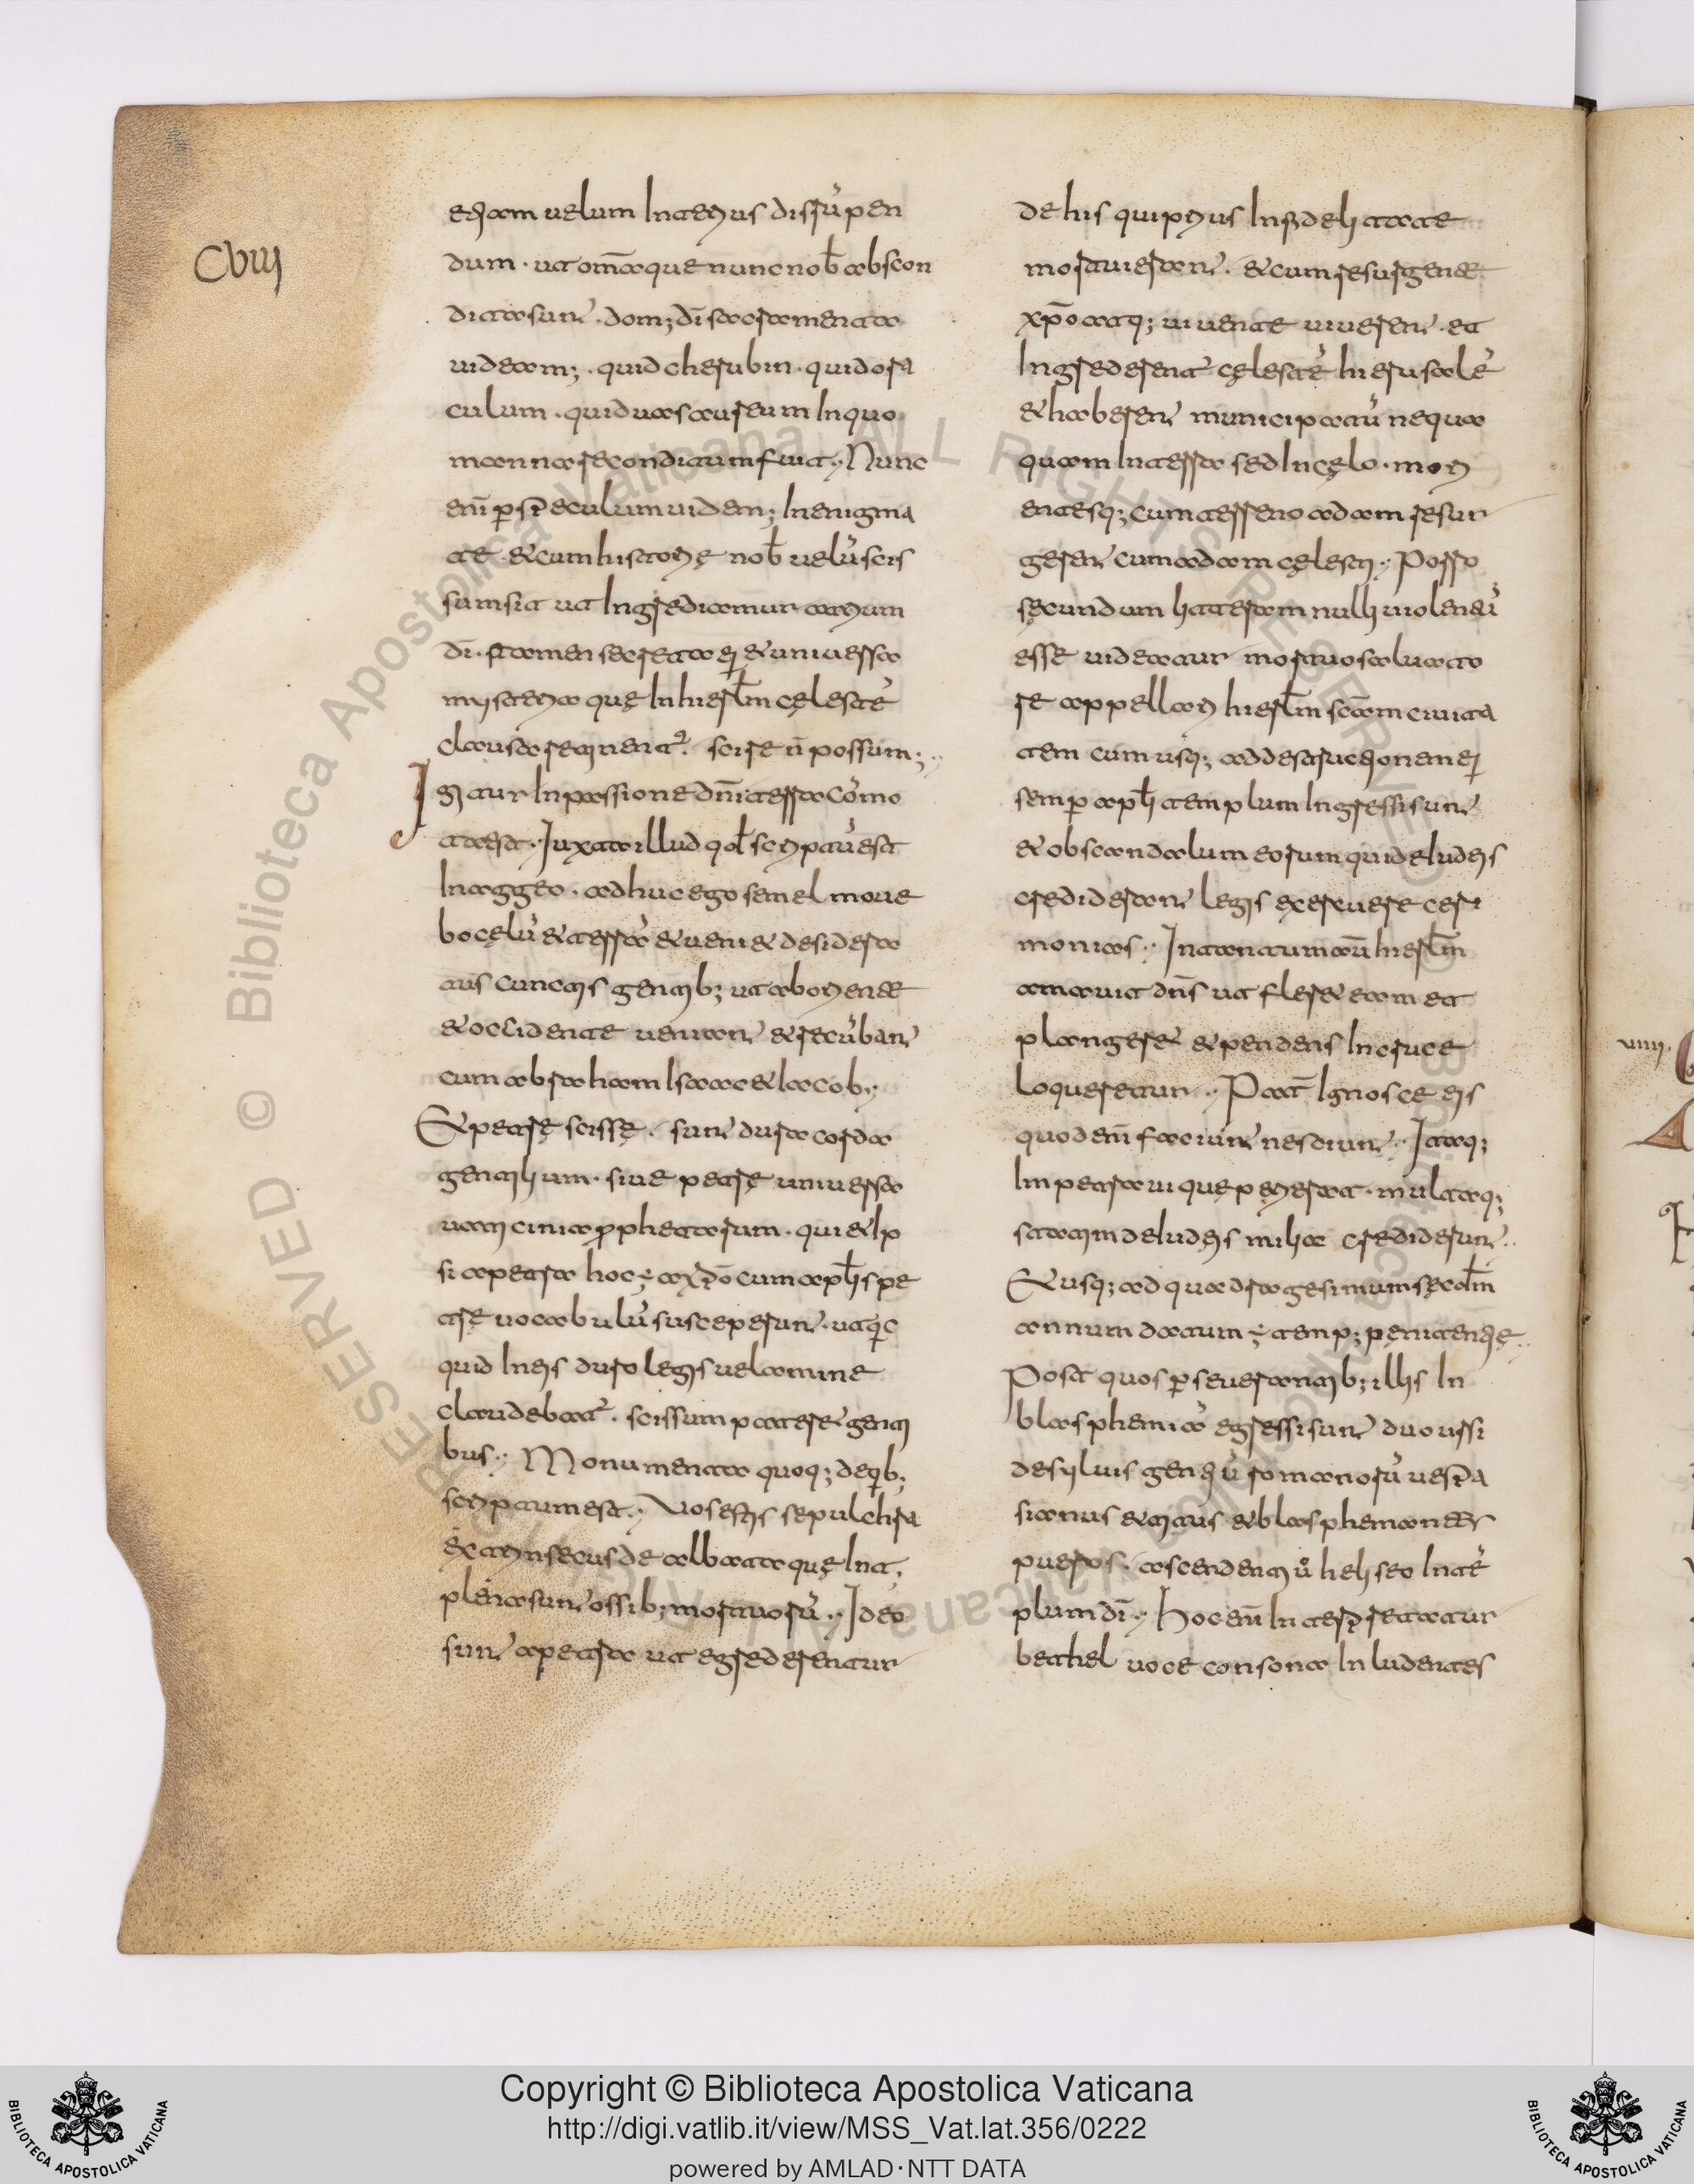 CVIII
etiam uelum interius disrūpen
dum · ut om̄aque nunc nob̄ abscon
dita sunt · dom; dī sacramenta
uideam; · quid cherubin · quid ora
culum · quid uas aureum in quo
manna reconditum fuit ·, Nunc
eni ̄p speculum uidem; in enigma
te · et cum historię nob̄ uelū scis
sum sit ut ingrediamur atrium
dī · tamen secreta ei et uniuersa
mysteria quę in hierl̄m cęlestē
clausa retinent · scire n̄ possum;
Igitur in passione dn̄i terra cōmo
ta est ·, Iuxta illud qd̄ scriptū est
in aggeo · adhuc ego semel moue
bo cęlū et terrā et ueniet desidera
tus cunctis gentib; ut ab oriente
et occidente ueniant et recūbant
cum abraham isaac et iacob ·,
Et petrę scissę · sunt dura corda
gentilium · siue petrę uniuersa
uaticinia prophetarum · qui et ip
si a petra hoc ÷ a xp̄o cum apl̄is pe
trę uocabulū susceperunt · ut qic
quid in eis duro legis uelamine
claudebat · scissum pateret genti
bus ·, Monumenta quoq; de qib;
scriptum est ·, Vos estis sepulchra
extrinsecus dealbata quę int;
plena sunt ossib; mortuorū ·, Ideo
sunt aperta ut egrederentur
de his qui prius in fidelitate
mortui erant · et cum resurgente
xp̄o atq; uiuente uiuerent · et
ingrederent cęlestē hierusalē
et haberent municipatū nequa
quam in terra sed in cęlo · mori
entesq; cum terreno adam resur
gerent cum adam cęlesti ·, Porro
secundum litteram nulli uiolentū
esse uideatur mortuo saluato
re appellari hierl̄m sc̄am ciuita
tem cum usq; ad destructionem ei
semp apl̄i templum ingressi sunt
et ob scandalum eorum qui de iudeis
crediderant legis exercuere ceri
monias ·, In tantum aū hierl̄m
amauit dn̄s ut fleret eam et
plangeret et pendens in cruce
loqueretur ·, Pat̄ ignosce eis
quod enī faciunt nesciunt ·, Itaq;
impetrauit que petierat · multaq;
statim de iudeis milia crediderunt ·,
Et usq; ad quadragesimum secdm̄
annum datum ÷ temp; penitentię ·,
Post quos pseuerantib; illis in
blasphemiā egressi sunt duo ursi
de syluis gentiū romanorū uespa
sianus et titus et blasphemantes
pueros · ascendenti ū heliseo in tē
plum dī ·, Hoc enī interpretatur
bethel uoce consona inludentes
VIIII.
Copyright © Biblioteca Apostolica Vaticana
http://digi.vatlib.it/view/MSS_Vat.lat.356/0222
powered by AMLAD·NTT DATA
BIBLIOTECA APOSTOLICA VATICANA
BIBLIOTECA APOSTOLICA VATICANA